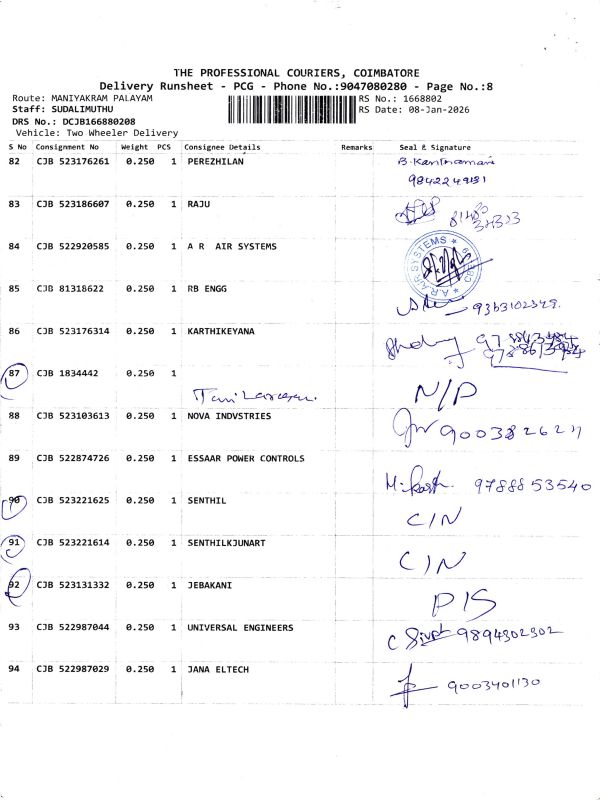 THE PROFESSIONAL COURIERS, COIMBATORE
Delivery Runsheet - PCG - Phone No.:9047080280 - Page No.:8
Route: MANIYAKRAM PALAYAM RS No.: 1668802
Staff: SUDALIMUTHU RS Date: 08-Jan-2026
DRS No.: DCJB166880208
Vehicle: Two Wheeler Delivery
S No Consignment No Weight PCS Consignee Details Remarks Seal & Signature
82 CJB 523176261 0.250 1 PEREZHILAN B. Kanthamani
9842249131
83 CJB 523186607 0.250 1 RAJU
84 CJB 522920585 0.250 1 A R AIR SYSTEMS
A.R AIR SYSTEMS
85 CJB 81318622 0.250 1 RB ENGG 9363102349.
86 CJB 523176314 0.250 1 KARTHIKEYANA
87 CJB 1834442 0.250 1 N/P
88 CJB 523103613 0.250 1 NOVA INDVSTRIES
89 CJB 522874726 0.250 1 ESSAAR POWER CONTROLS 9788853540
90 CJB 523221625 0.250 1 SENTHIL C/N
91 CJB 523221614 0.250 1 SENTHILKJUNART C/N
92 CJB 523131332 0.250 1 JEBAKANI P/S
93 CJB 522987044 0.250 1 UNIVERSAL ENGINEERS 9894302302
94 CJB 522987029 0.250 1 JANA ELTECH 9003401130